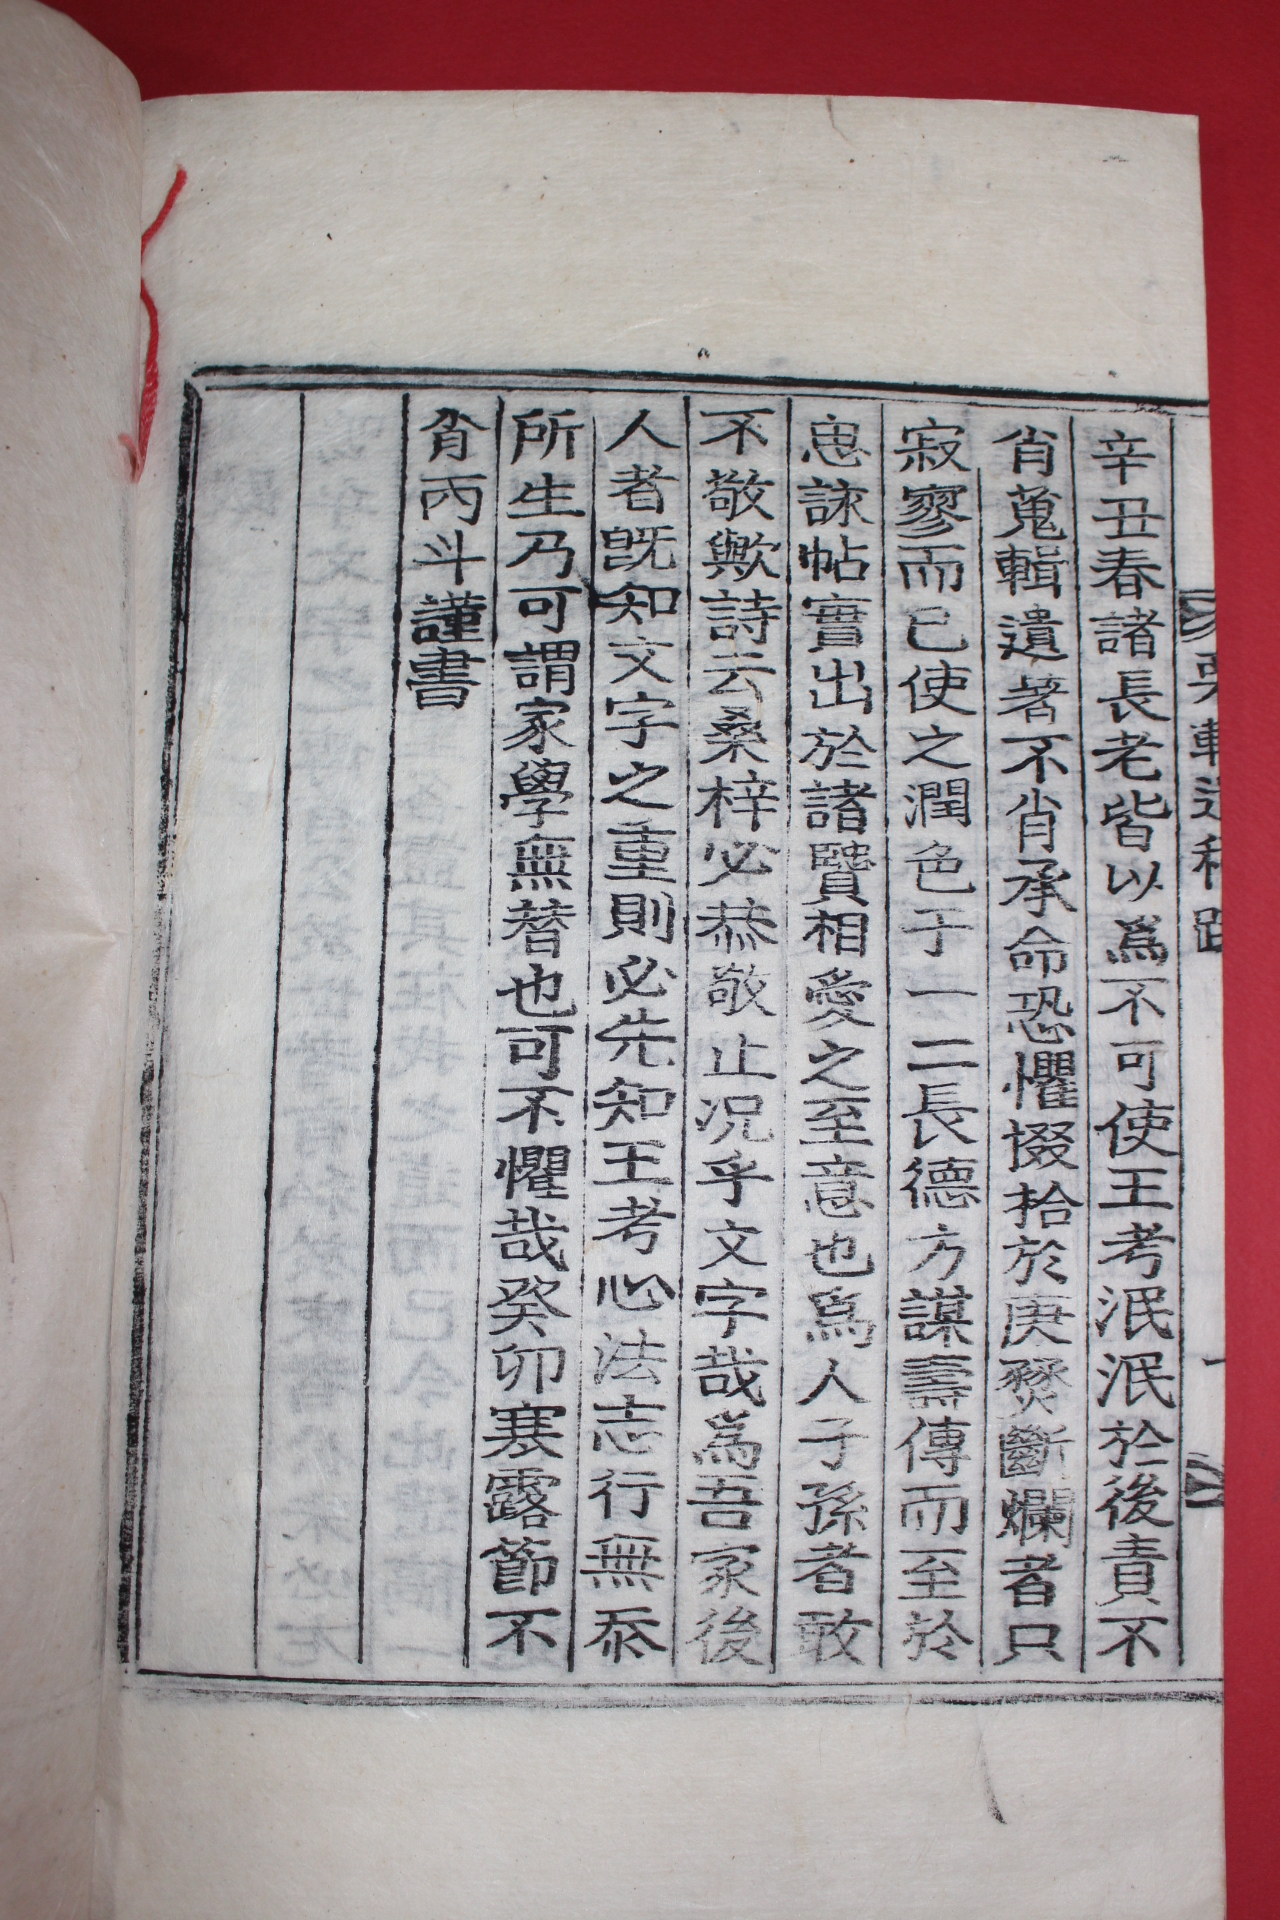 辛丑春諸長老皆以爲不可使王考泯泯於後責不
肖蒐輯遺著不肖承命恐懼掇拾於庚燹斷爛者只
寂寥而已使之潤色于一二長德方謀壽傳而至於
恖詠帖實出於諸贒相愛之至意也爲人子孫者敢
不敬歟詩云桑梓必恭敬止况乎文字哉爲吾家後
人者旣知文字之重則必先知王考心法志行無忝
所生乃可謂家學無替也可不懼哉癸卯寒露節不
肖丙斗謹書
軒遺稿跋
一